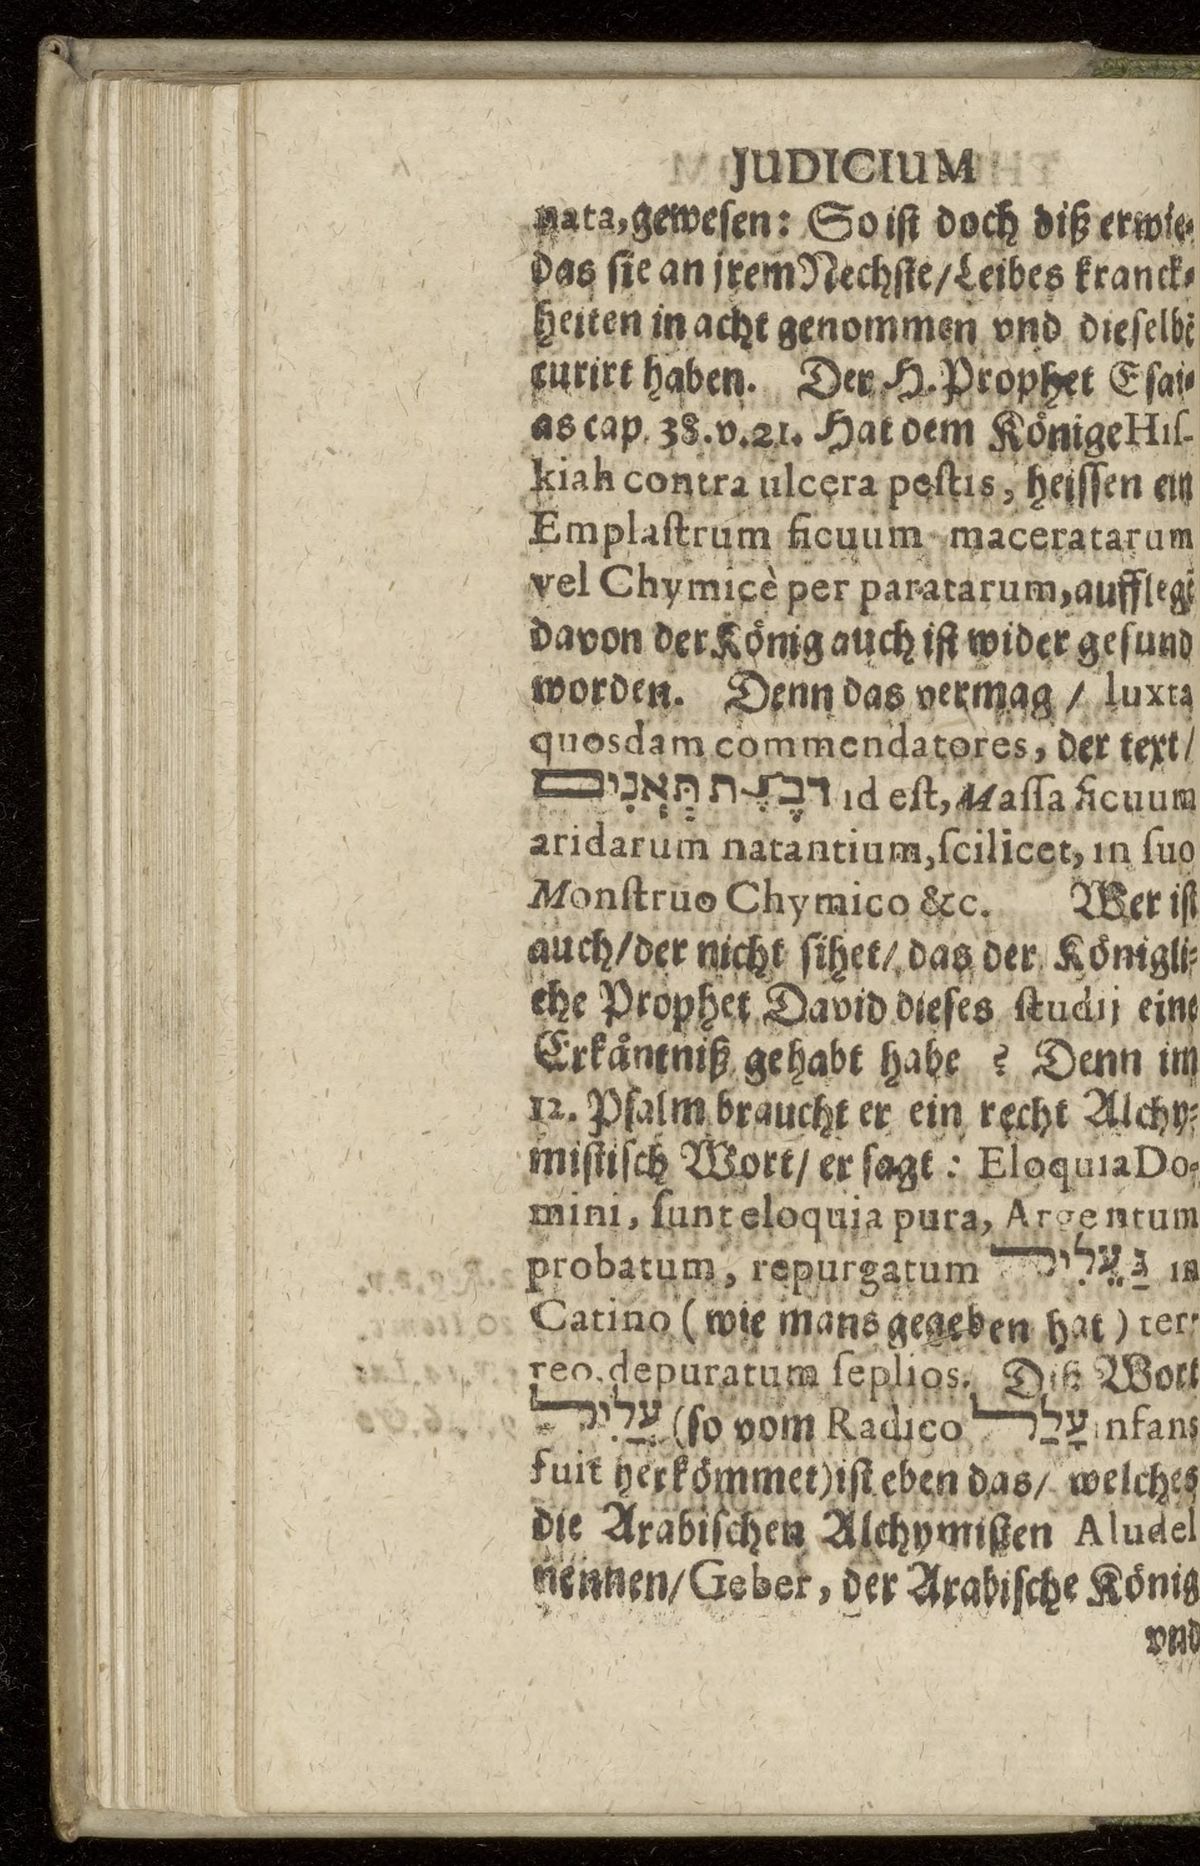 JUDICIUM
nata, gewesen: So ist doch diß erwie-
das sie an jrem Nechste/Leibes kranck-
heiten in acht genommen vnd dieselbē
curirt haben. Der H. Prophet Esai-
as cap. 38. v. 21. Hat dem Könige Hiſ-
kiah contra ulcera peſtis, heissen ein
Emplaſtrum ficuum maceratarum
vel Chymicè per paratarum, aufflegē
davon der König auch ist wider gesund
worden. Denn das vermag / Iuxta
quosdam commendatores, der text/
דבֶלֶת תְּאֵנִים id eſt, Maſſa ficuum
aridarum natantium, ſcilicet, in ſuo
Monſtruo Chymico &c. Wer ist
auch/der nicht sihet/ das der Königli-
che Prophet David dieses ſtudij eine
Erkäntniß gehabt habe ? Denn im
12. Psalm braucht er ein recht Alchy-
mistisch Wort/ er sagt : Eloquia Do-
mini, ſunt eloquia pura, Argentum
probatum, repurgatum בַּעֲלִיל in
Catino ( wie mans gegeben hat ) ter-
reo, depuratum ſeplios. Diß Wort
עֲלִיל (so vom Radico עָלַל infans
fuit herkömmet) ist eben das/ welches
die Arabischen Alchymisten Aludel
nennen/ Geber, der Arabische König
vnd